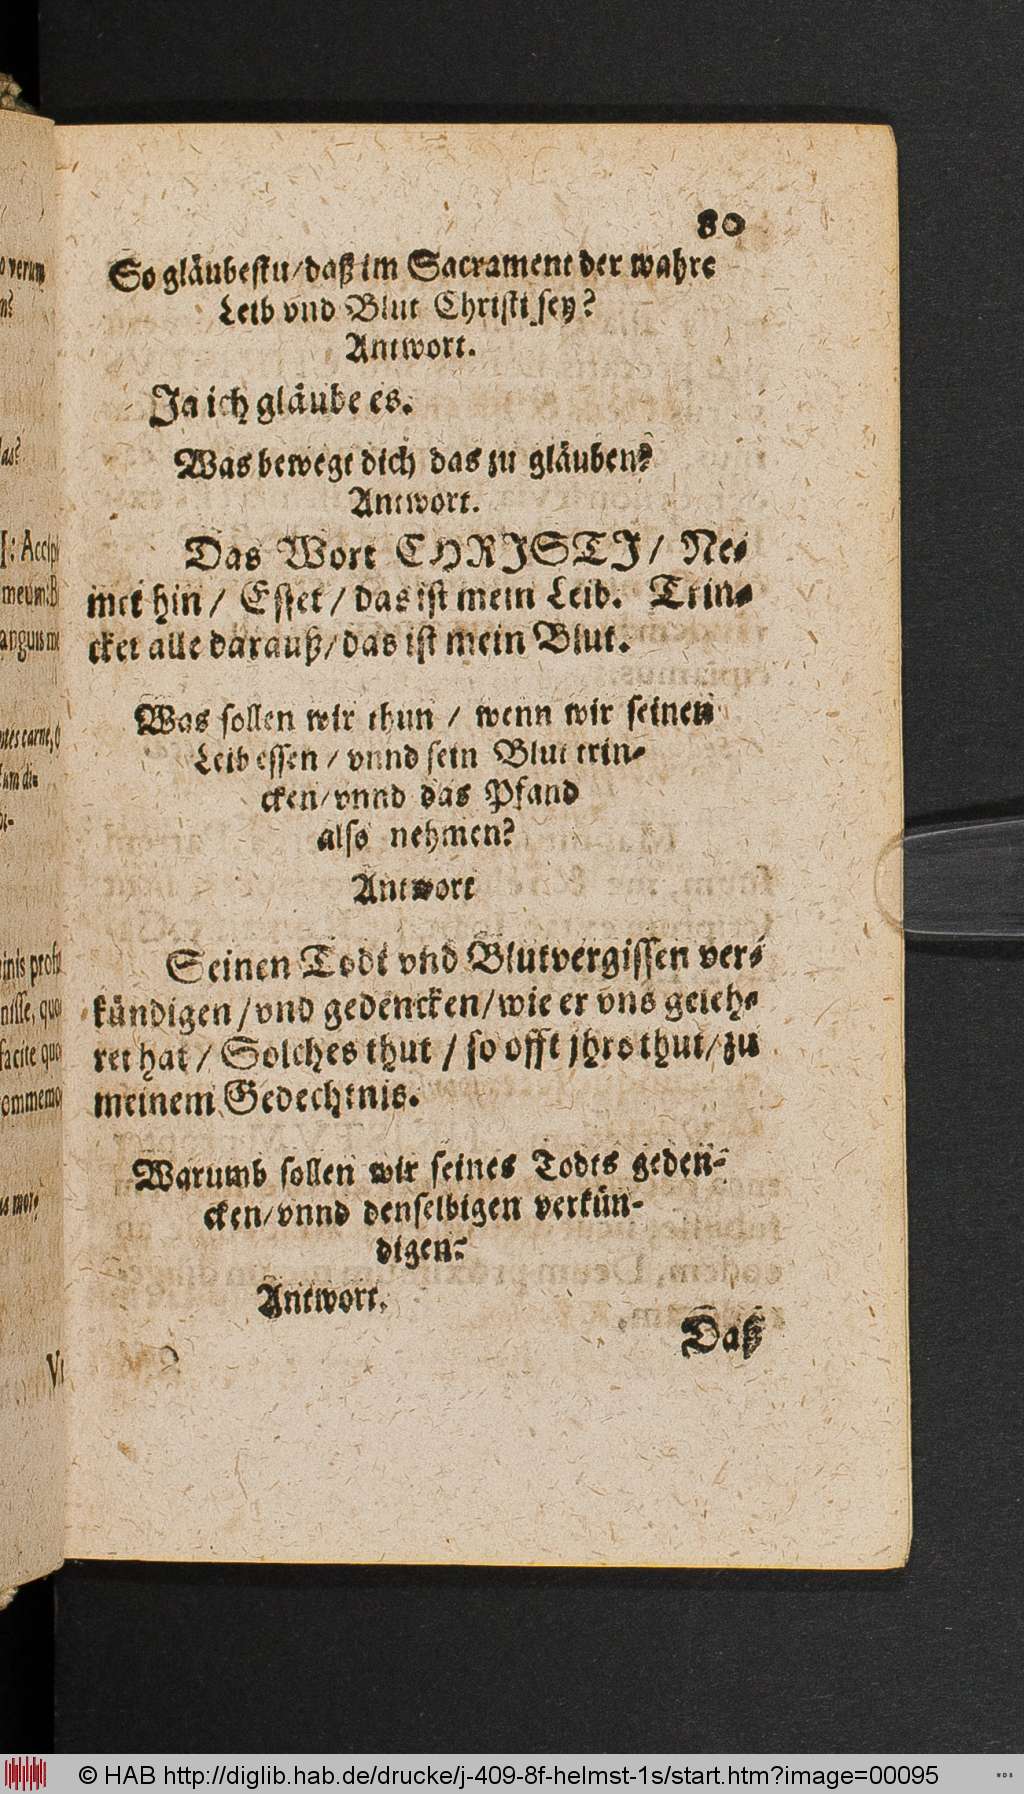 80
So gläubestu/daß im Sacrament der wahre
Leib vnd Blut Christi sey?
Antwort.
Ja ich gläube es.
Was bewegt dich das zu gläuben?
Antwort.
Das Wort CHRISTI/ Ne-
met hin/ Esset/ das ist mein Leib. Trin-
cket alle darauß/das ist mein Blut.
Was sollen wir thun / wenn wir seinen
Leib essen / vnnd sein Blut trin-
cken/vnnd das Pfand
also nehmen?
Antwort
Seinen Todt vnd Blutvergissen ver-
kündigen/vnd gedencken/wie er vns geleh-
ret hat/ Solches thut / so offt jhrs thut/zu
meinem Gedechtnis.
Warumb sollen wir seines Todts geden-
cken/vnnd denselbigen verkün-
digen?
Antwort.
Daß
© HAB http://diglib.hab.de/drucke/j-409-8f-helmst-1s/start.htm?image=00095